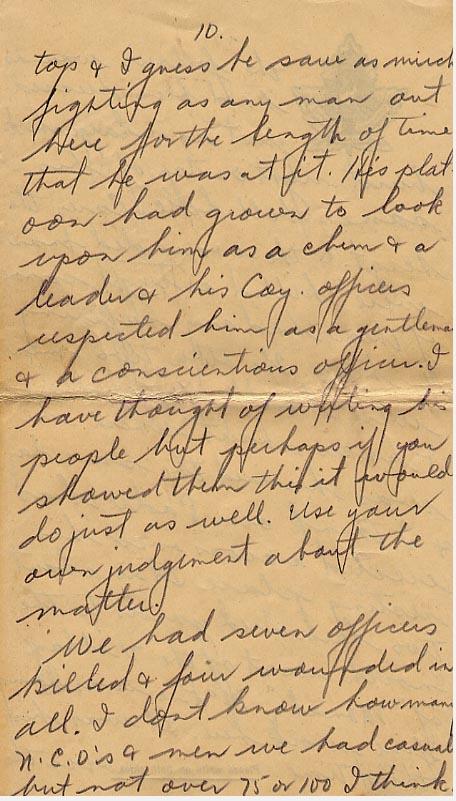 10.
top & I guess he saw as much
fighting as any man out
here for the length of time
that he was at it. His plat-
oon had grown to look
upon him as a chum & a
leader & his Coy. officers
respected him as a gentleman
& a conscientious officer. I
have thought of writing his
people but perhaps if you
showed them this it would
do just as well. Use your
own judgement about the
matter.
We had seven officers
killed & four wounded in
all. I dont know how many
N.C.O's & men we had casual
but not over 75 or 100 I think.